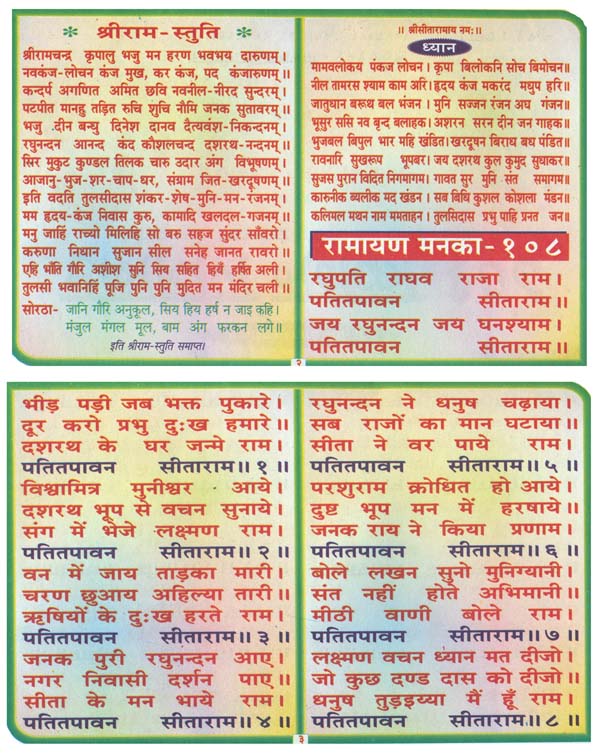 * श्रीराम-स्तुति *
श्रीरामचन्द्र कृपालु भजु मन हरण भवभय दारुणम्।
नवकंज-लोचन कंज मुख, कर कंज, पद कंजारुणम्॥
कन्दर्प अगणित अमित छवि नवनील-नीरद सुन्दरम्।
पटपीत मानहु तड़ित रुचि शुचि नौमि जनक सुतावरम्॥
भजु दीन बन्धु दिनेश दानव दैत्यवंश-निकन्दनम्।
रघुनन्दन आनन्द कंद कौशलचन्द दशरथ-नन्दनम्॥
सिर मुकुट कुण्डल तिलक चारु उदार अंग विभूषणम्।
आजानु-भुज-शर-चाप-धर, संग्राम जित-खरदूषणम्॥
इति वदति तुलसीदास शंकर-शेष-मुनि-मन-रंजनम्।
मम हृदय-कंज निवास कुरु, कामादि खलदल-गजनम्॥
मनु जाहिं राच्यो मिलिहि सो बरु सहज सुंदर साँवरो।
करुणा निधान सुजान सील सनेह जानत रावरो॥
एहि भाँति गौरि अशीश सुनि सिय सहित हियँ हर्षित अली।
तुलसी भवानिहिं पूजि पुनि पुनि मुदित मन मंदिर चली॥
सोरठा- जानि गौरि अनुकूल, सिय हिय हर्ष न जाइ कहि।
मंजुल मंगल मूल, बाम अंग फरकन लगे॥
इति श्रीराम-स्तुति समाप्त।
॥ श्रीसीतारामाय नमः॥
ध्यान
मामवलोकय पंकज लोचन। कृपा बिलोकनि सोच बिमोचन॥
नील तामरस श्याम काम अरि। हृदय कंज मकरंद मधुप हरि॥
जातुधान बरूथ बल भंजन। मुनि सज्जन रंजन अघ गंजन॥
भूसुर ससि नव बृन्द बलाहक। अशरन सरन दीन जन गाहक॥
भुजबल बिपुल भार महि खंडित। खरदूषन बिराध बध पंडित॥
रावनारि सुखरूप भूपबर। जय दशरथ कुल कुमुद सुधाकर॥
सुजस पुरान विदित निगमागम। गावत सुर मुनि संत समागम॥
कारुनीक ब्यलीक मद खंडन। सब बिधि कुशल कोशला मंडन॥
कलिमल मथन नाम ममताहन। तुलसिदास प्रभु पाहि प्रनत जन॥
रामायण मनका-१०८
रघुपति राघव राजा राम।
पतितपावन सीताराम॥
जय रघुनन्दन जय घनश्याम।
पतितपावन सीताराम॥
२
भीड़ पड़ी जब भक्त पुकारे।
दूर करो प्रभु दुःख हमारे॥
दशरथ के घर जन्मे राम।
पतितपावन सीताराम॥१॥
विश्वामित्र मुनीश्वर आये।
दशरथ भूप से वचन सुनाये॥
संग में भेजे लक्ष्मण राम।
पतितपावन सीताराम॥२॥
वन में जाय ताड़का मारी।
चरण छुआय अहिल्या तारी॥
ऋषियों के दुःख हरते राम।
पतितपावन सीताराम॥३॥
जनक पुरी रघुनन्दन आए।
नगर निवासी दर्शन पाए॥
सीता के मन भाये राम।
पतितपावन सीताराम॥४॥
रघुनन्दन ने धनुष चढ़ाया।
सब राजों का मान घटाया॥
सीता ने वर पाये राम।
पतितपावन सीताराम॥५॥
परशुराम क्रोधित हो आये।
दुष्ट भूप मन में हरषाये॥
जनक राय ने किया प्रणाम।
पतितपावन सीताराम॥६॥
बोले लखन सुनो मुनिग्यानी।
संत नहीं होते अभिमानी॥
मीठी वाणी बोले राम।
पतितपावन सीताराम॥७॥
लक्ष्मण वचन ध्यान मत दीजो।
जो कुछ दण्ड दास को दीजो॥
धनुष तुड़इय्या मैं हूँ राम।
पतितपावन सीताराम॥८॥
३